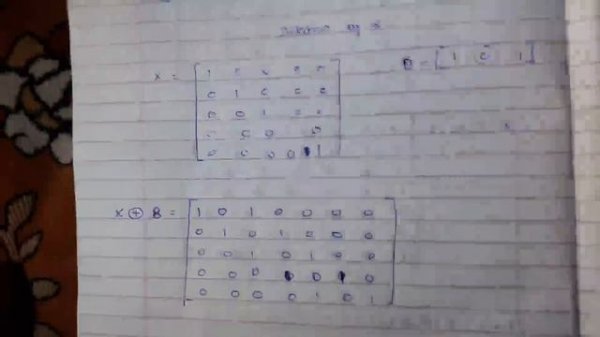 X = [ 1 0 0 0 0 B = [ 1 0 1 ]
0 1 0 0 0
0 0 1 0 0
0 0 0 0
0 0 0 0 1 ]
X ⊕ B = [ 1 0 1 0 0 0 0
0 1 0 1 0 0 0
0 0 1 0 1 0 0
0 0 0 1 0 1 0
0 0 0 0 1 0 1 ]